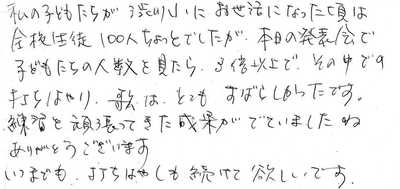 私の子どもたちが渋川小にお世話になった頃は
全校生徒100人ちょっとでしたが、本日の発表会で
子どもたちの人数を見たら、3倍以上で、その中での
打ちはやし、歌は、とても すばらしかったです。
練習を頑張ってきた成果がでていましたね
ありがとうございます
いつまでも、打ちはやしも続けて欲しいです。